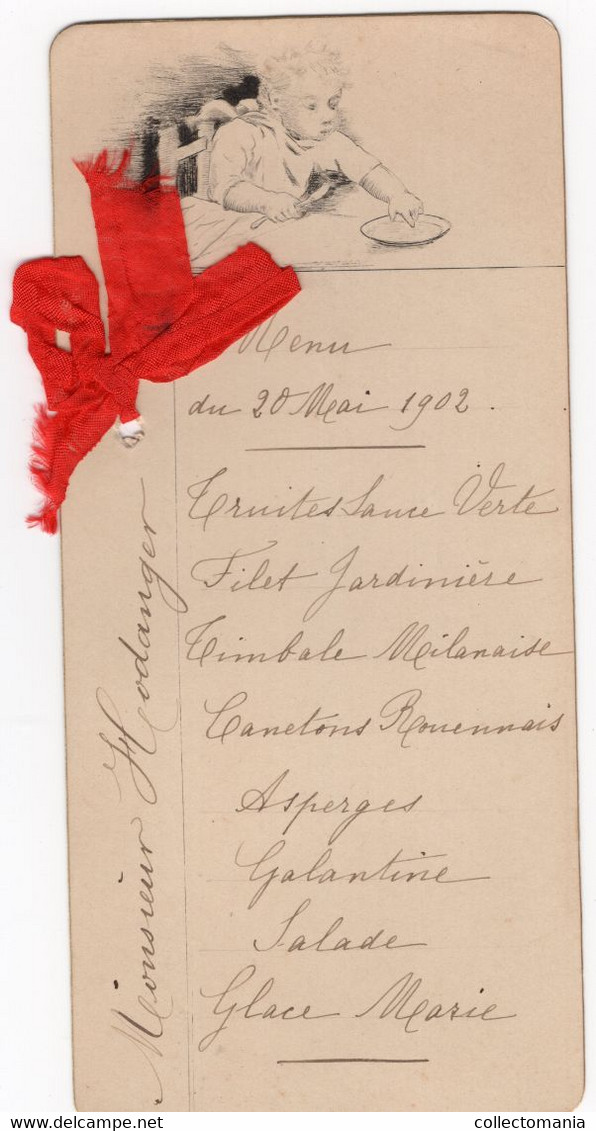 Menu
du 20 Mai 1902.
Truites Sauce Verte
Filet Jardinière
Timbale Milanaise
Canetons Rouennais
Asperges
Galantine
Salade
Glace Marie
Monsieur Hodanger
delcampe.net
collectomania